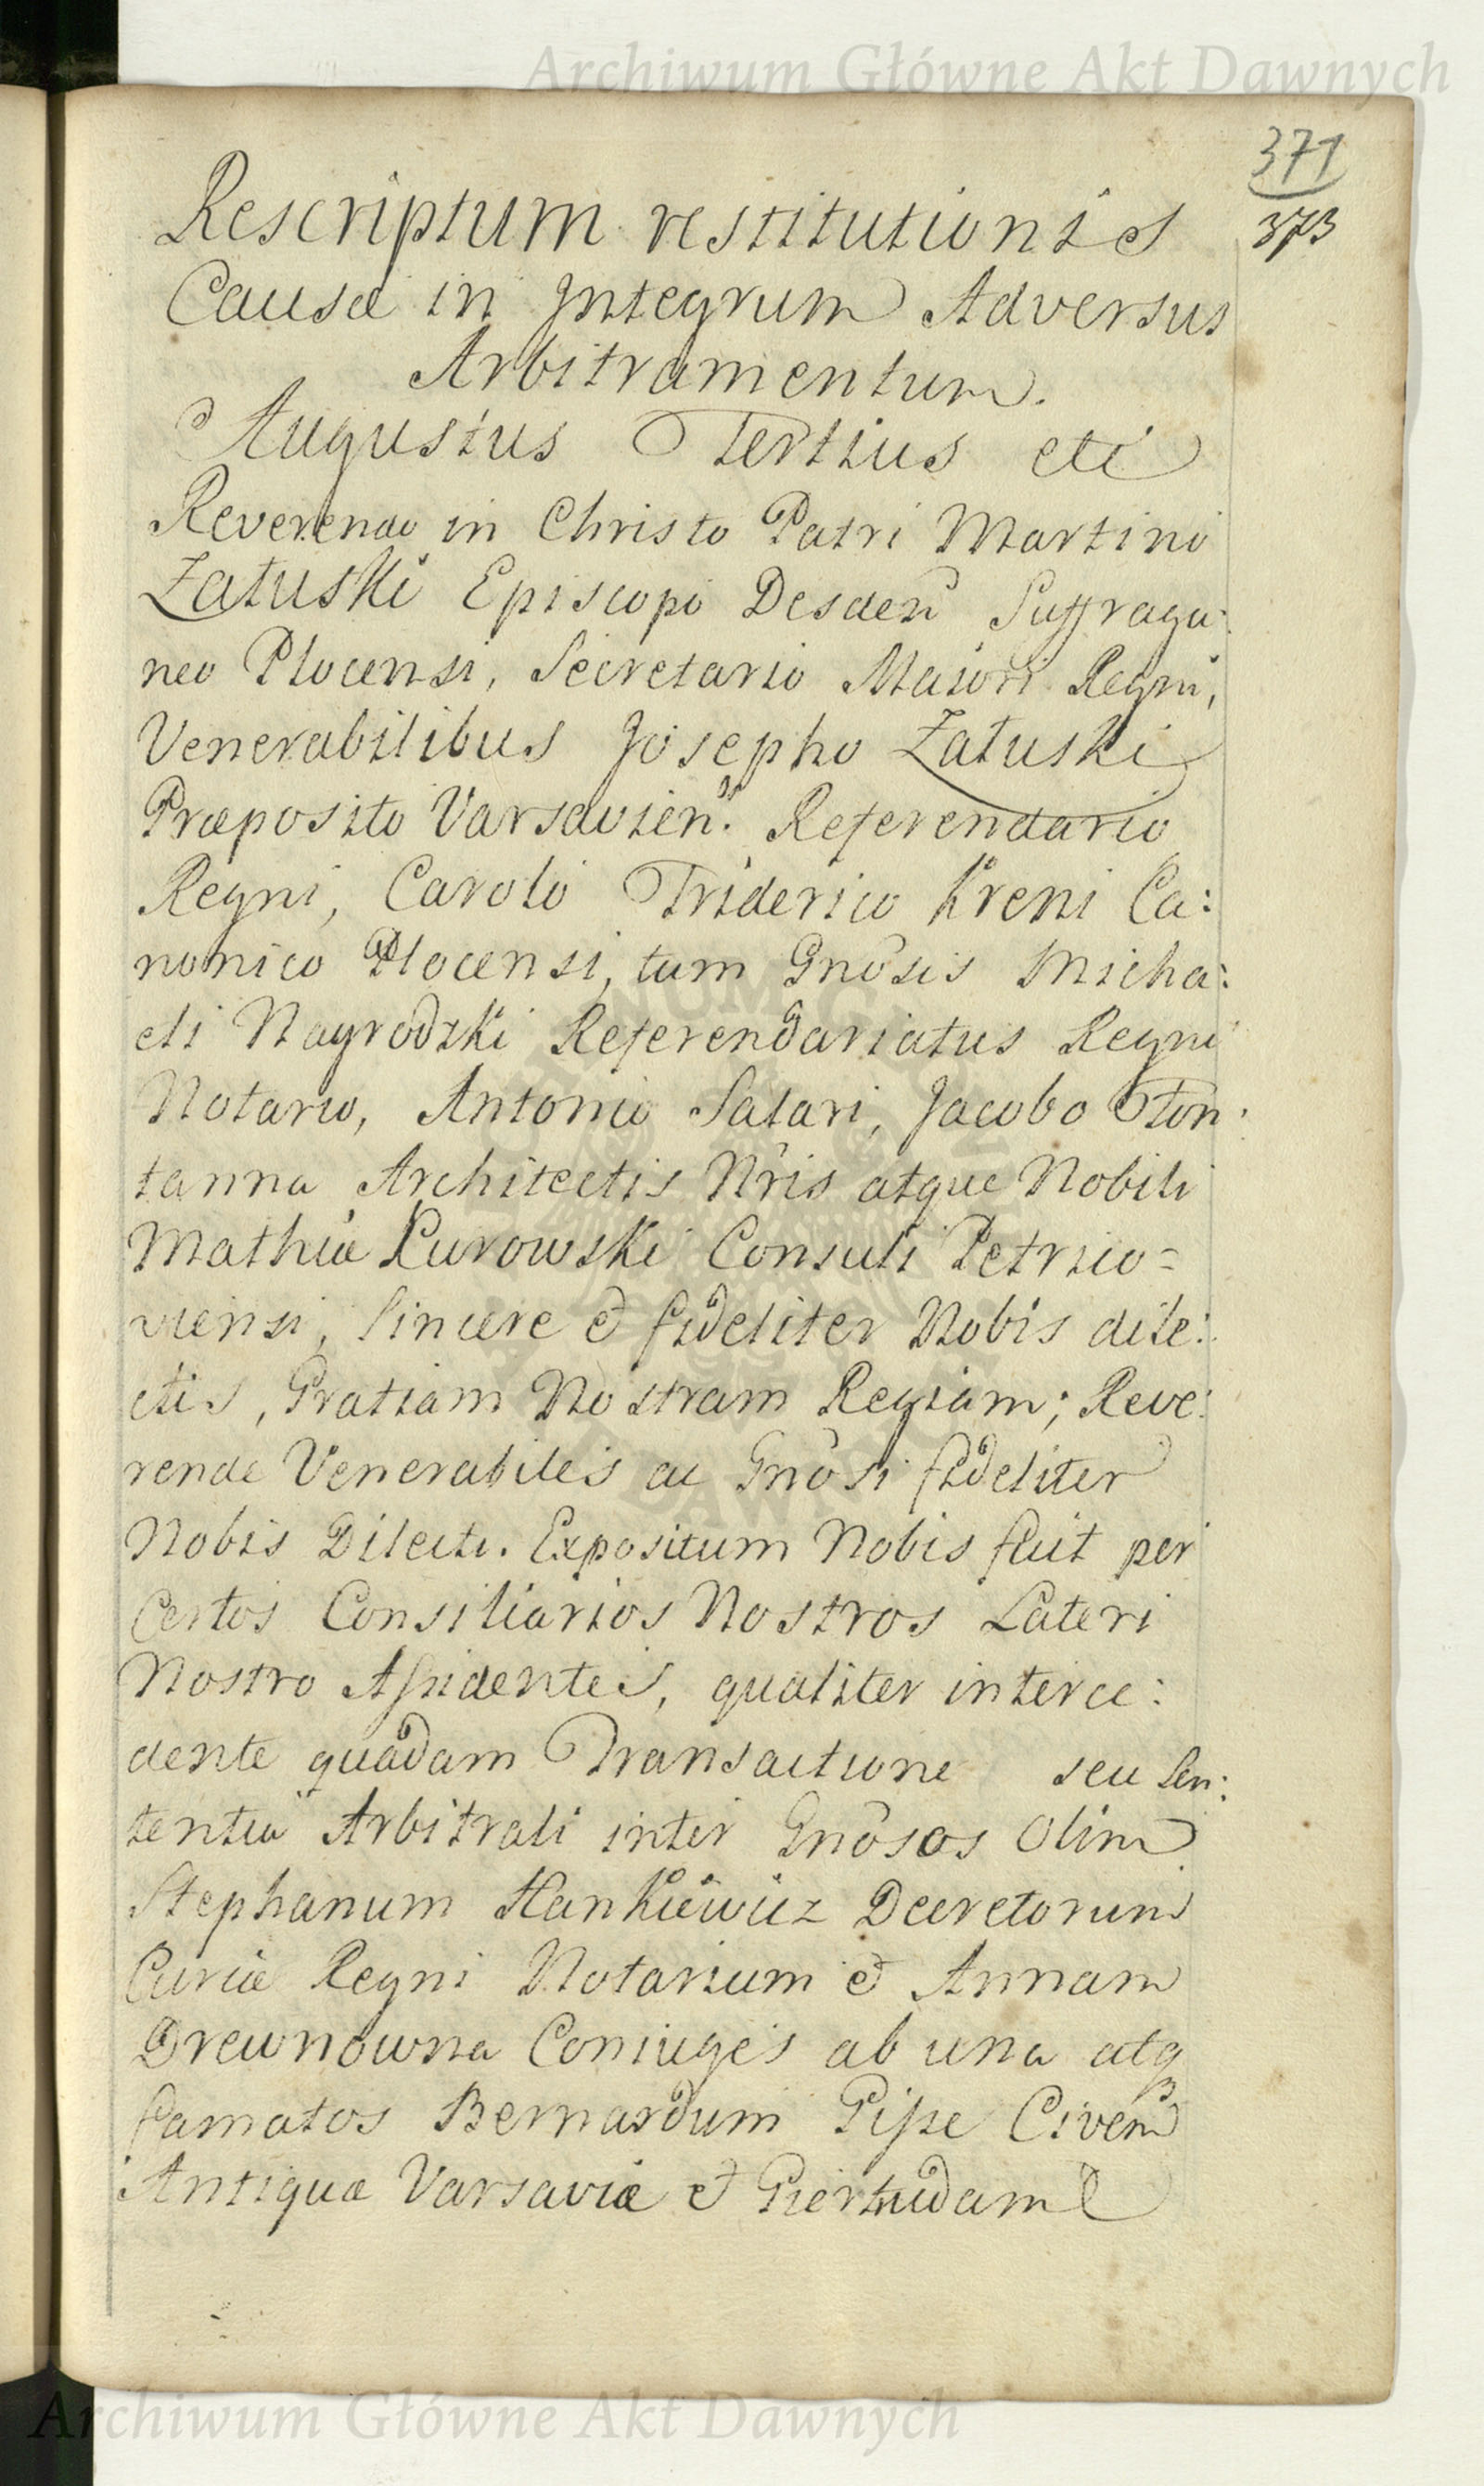 Archiwum Główne Akt Dawnych
371
373
Rescriptum restitutionis
Causæ in Jntegrum Adversus
Arbitramentum.
Augustus Tertius etc
Reverendo in Christo Patri Martino
Załuski Episcopo Desden Suffraga:
neo Plocensi, Secretario Maiori Regni,
Venerabilibus Josepho Załuski
Præposito Varsavien. Referendario
Regni, Carolo Friderico Kreni Ca:
nonico Plocensi, tum Gnosis Micha:
eli Nagrodzki Referendariatus Regni
Notario, Antonio Salari, Jacobo Fon:
tanna Architectis Nris atque Nobili
Mathiæ Kurowski Consuli Petrico=
viensi, Sincere et fideliter Nobis dile:
ctis, Gratiam Nostram Regiam; Reve:
rende Venerabiles ac Gnosi fideliter
Nobis Dilecti. Expositum Nobis fuit per
Certos Consiliarios Nostros Lateri
Nostro Assidentes, qualiter interce:
dente quadam Transactione seu Sen:
tentia Arbitrali inter Gnosos Olim
Stephanum Hankiewicz Decretorum
Curiæ Regni Notarium et Annam
Drewnowna Coniuges ab una atq
famatos Bernardum Gisse Civem
Antiquæ Varsaviæ et Giertrudam
Archiwum Główne Akt Dawnych